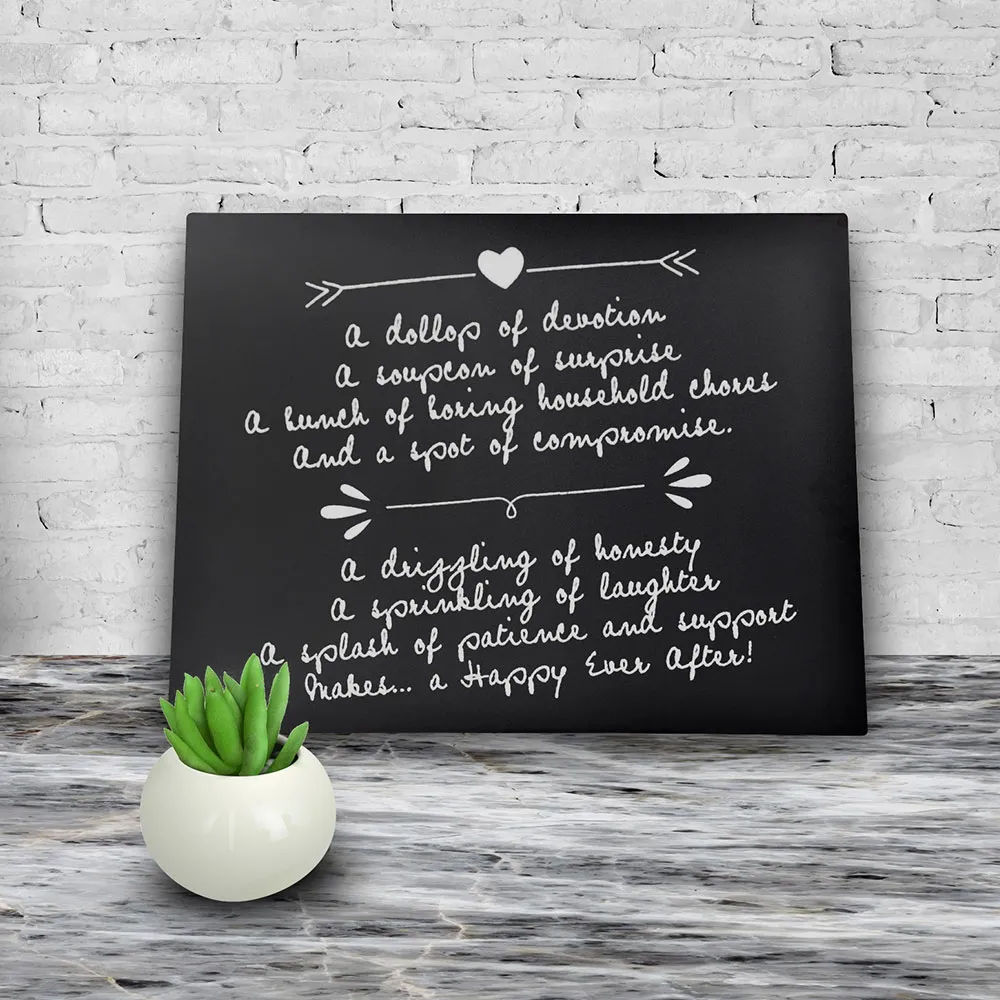 A dollop of devotion
A soupcon of surprise
A bunch of boring household chores
And a spot of compromise.
A drizzling of honesty
A sprinkling of laughter
A splash of patience and support
Makes... a Happy Ever After!